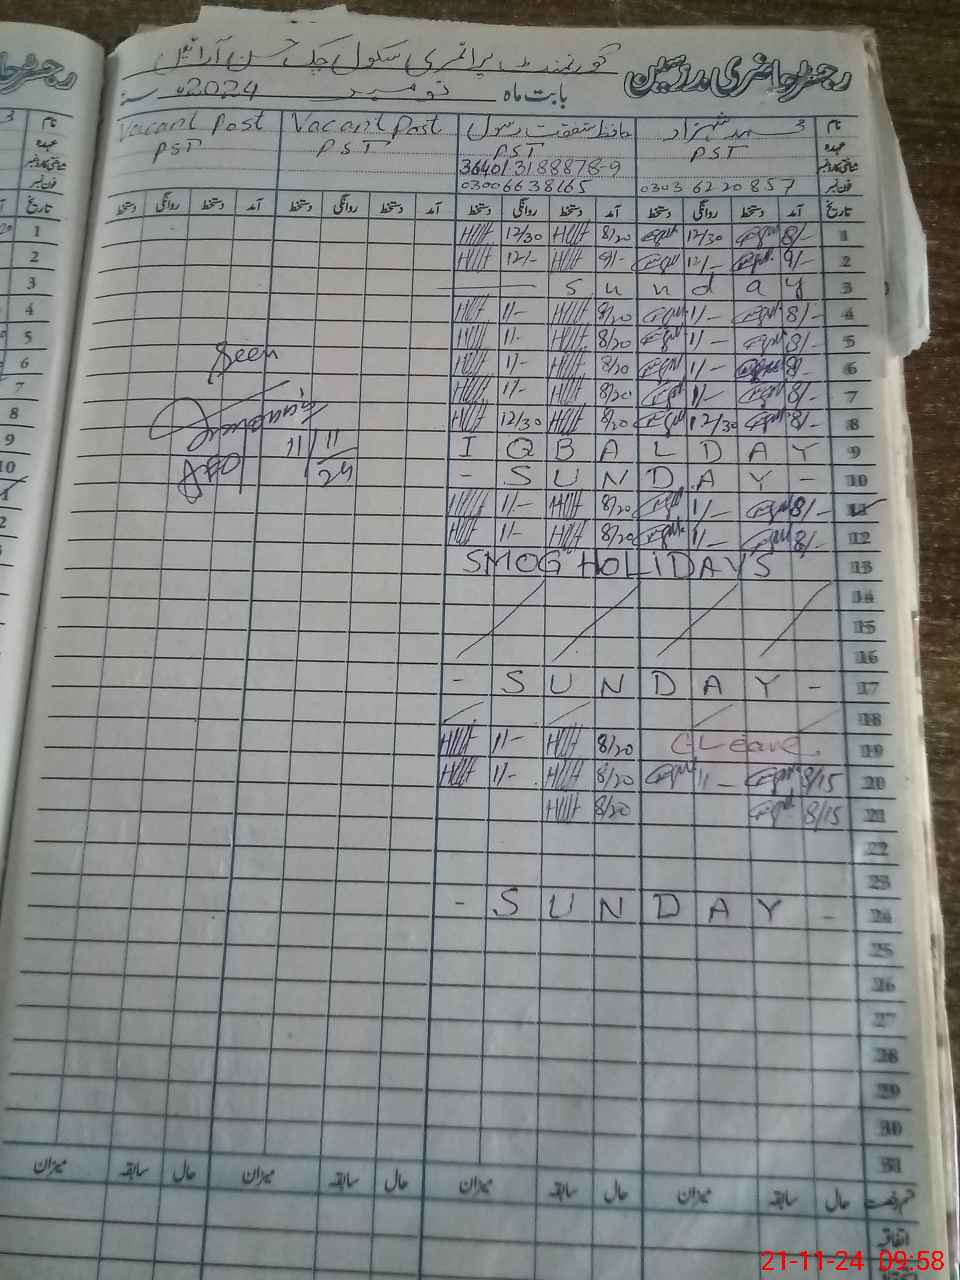 رجسٹر حاضری مدرسین
گورنمنٹ پرائمری سکول چک حسن آرائیں
بابت ماہ نومبر سنہ 2024
نام شہزاد حافظ شفقت رسول Vacant Post Vacant Post
عہدہ PST PST PST PST
36401 3188878-9
فون نمبر 0303 6220857 03006638165
تاریخ آمد دستخط روانگی دستخط آمد دستخط روانگی دستخط آمد دستخط روانگی دستخط آمد دستخط روانگی دستخط
1 8/- 12/30 8/20 12/30
2 9/- 12/- 9/- 12/-
3 Sunday
4 8/- 1/- 8/20 1/-
5 8/- 1/- 8/20 1/-
6 8/- 1/- 8/20 1/-
7 8/- 1/- 8/20 1/-
8 8/- 12/30 8/20 12/30
9 IQBAL DAY
10 - SUNDAY -
11 8/- 1/- 8/20 1/-
12 8/- 1/- 8/20 1/-
13 SMOG HOLIDAYS
14
15
16
17 - SUNDAY -
18
19 C Leave 8/20 1/-
20 8/15 1/- 8/20 1/-
21 8/15 8/20
22
23
24 - SUNDAY -
25
26
27
28
29
30
31
Seen
11/11/24
قسم رخصت حال سابقہ میزان حال سابقہ میزان حال سابقہ میزان حال سابقہ میزان
اتفاقیہ
21-11-24 09:58